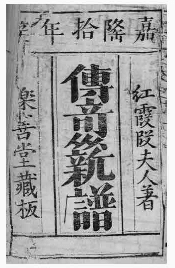 嘉隆拾年
紅霞段夫人著
傳竒新譜
樂善堂藏板